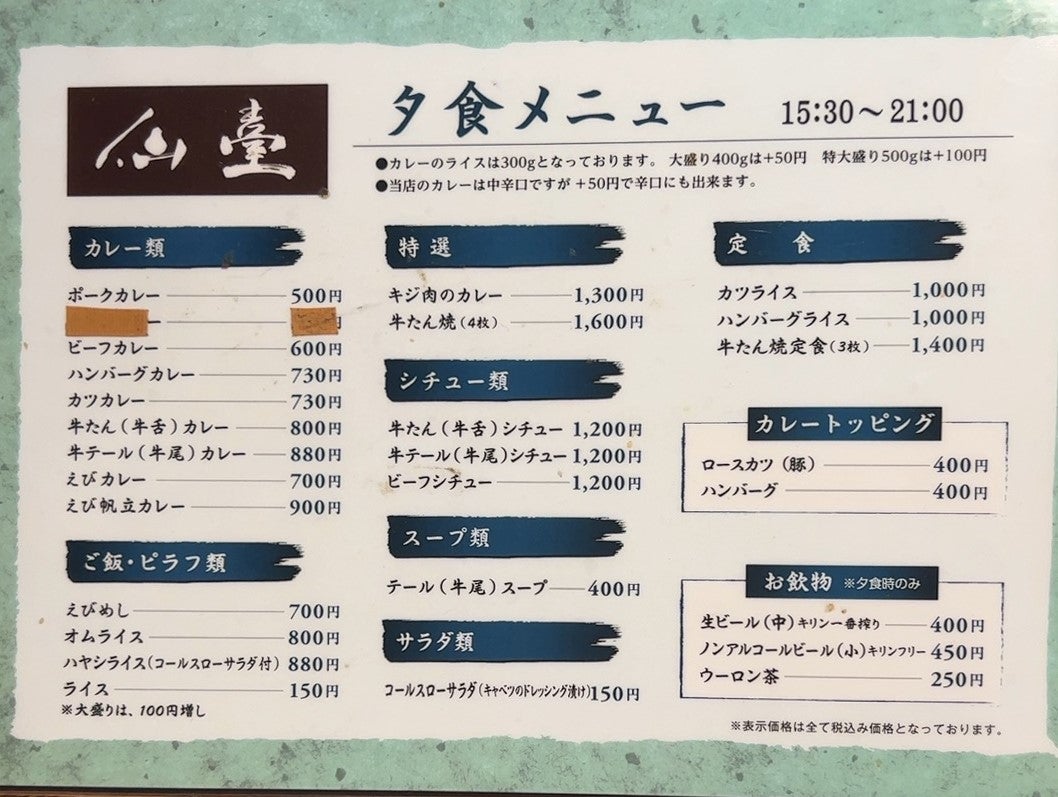 仙臺
夕食メニュー 15:30～21:00
●カレーのライスは300gとなっております。 大盛り400gは+50円 特大盛り500gは+100円
●当店のカレーは中辛口ですが +50円で辛口にも出来ます。
カレー類
ポークカレー 500円
ビーフカレー 600円
ハンバーグカレー 730円
カツカレー 730円
牛たん(牛舌)カレー 800円
牛テール(牛尾)カレー 880円
えびカレー 700円
えび帆立カレー 900円
ご飯・ピラフ類
えびめし 700円
オムライス 800円
ハヤシライス(コールスローサラダ付) 880円
ライス 150円
※大盛りは、100円増し
特選
キジ肉のカレー 1,300円
牛たん焼(4枚) 1,600円
シチュー類
牛たん(牛舌)シチュー 1,200円
牛テール(牛尾)シチュー 1,200円
ビーフシチュー 1,200円
スープ類
テール(牛尾)スープ 400円
サラダ類
コールスローサラダ(キャベツのドレッシング漬け) 150円
定食
カツライス 1,000円
ハンバーグライス 1,000円
牛たん焼定食(3枚) 1,400円
カレートッピング
ロースカツ(豚) 400円
ハンバーグ 400円
お飲物 ※夕食時のみ
生ビール(中)キリン一番搾り 400円
ノンアルコールビール(小)キリンフリー 450円
ウーロン茶 250円
※表示価格は全て税込み価格となっております。